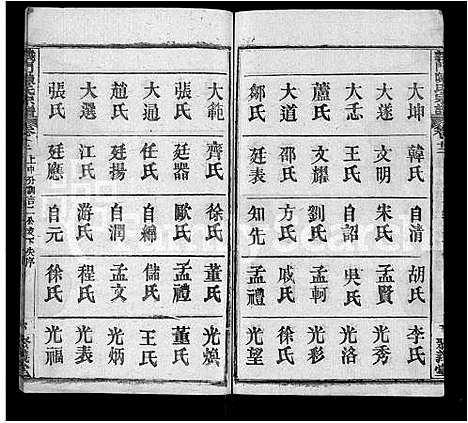 義門陳氏宗譜
大坤 韓氏 自清 胡氏 李氏
王氏 文明 宋氏 孟賢 光秀
大志 王氏 自詔 吳氏 光洛
蘆氏 文耀 劉氏 孟軻 光彩
大道 邵氏 方氏 戚氏 徐氏
鄒氏 廷表 知先 孟禮 光望
大範 齊氏 徐氏 董氏 光煥
張氏 廷器 歐氏 孟禮 董氏
大通 任氏 自綿 儲氏 王氏
趙氏 廷揚 自潤 孟文 光炳
大選 江氏 游氏 程氏 光表
張氏 廷應 自元 徐氏 光福
義門陳氏宗譜